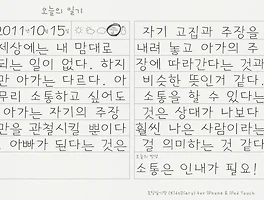 오늘의 일기
2011년 10월 15일
세상에는 내 맘대로
되는 일이 없다. 하지
만 아가는 다르다. 아
무리 소통하고 싶어도
아가는 자기의 주장
만을 관철시킬 뿐이다
아빠가 된다는 것은
자기 고집과 주장을
내려 놓고 아가의 주
장에 따라간다는 것과
비슷한 뜻인거 같다.
소통을 할 수 있다는
것은 상대가 나보다
훨씬 나은 사람이라는
걸 의미하는 것 같다.
오늘의 반성
소통은 인내가 필요!
(KidsDiary) for iPhone & iPod Touch